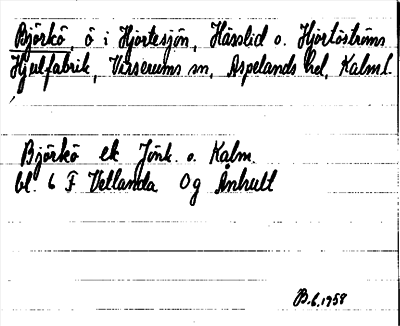 Björkö, ö i Hjortesjön, Hässlid o. Hjortöströms
Hjulfabrik, Virserums sn, Aspelands hd, Kalml.
Björkö ek Jönk. o. Kalm.
bl. 6 F Vetlanda Og Ånhult
B.6.1958